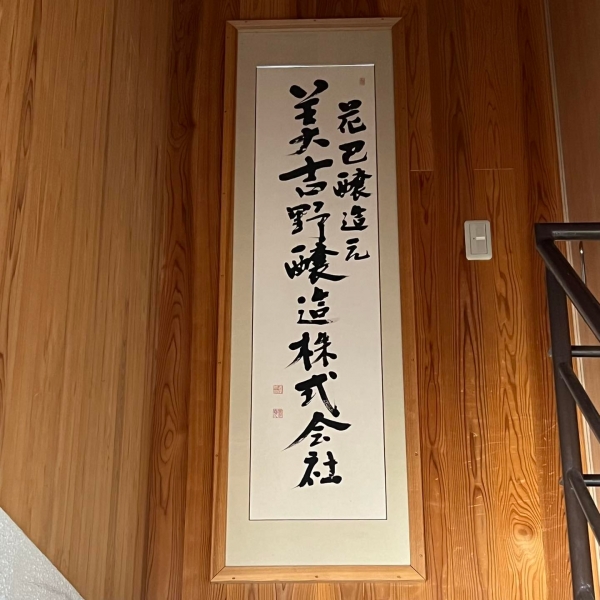 花巴醸造元
美吉野醸造株式会社